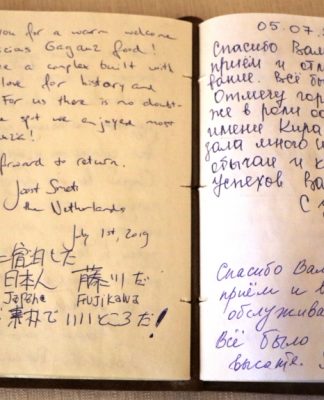 you for a warm welcome
Gagauz food!
a complex built with
love for history and
For us there is no doubt
spot we enjoyed most
forward to return.
Joost Smets
the Netherlands
July 1st, 2019
宿泊した
日本人 藤川だ
Japane FUJIKAWA
で いいところだ!
05.07.
Спасибо Вам
приём и
вание. Всё бы
Отмечу гор
же в роли со
имени Кира
зала много и
обычаи и к
Успехов Ва
С
Спасибо Вам
приём и в
обслужива
Всё было
высоте.